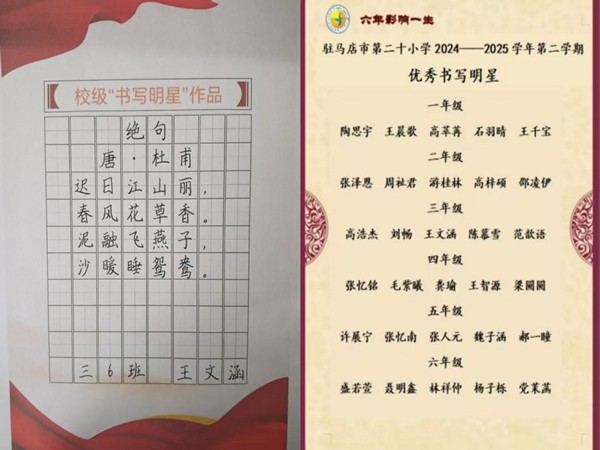 校级“书写明星”作品
绝句
唐·杜甫
迟日江山丽，
春风花草香。
泥融飞燕子，
沙暖睡鸳鸯。
三6班 王文涵
六年影响一生
驻马店市第二十小学2024——2025学年第二学期
优秀书写明星
一年级
陶思宇 王晨歌 高萃苒 石羽晴 王千宝
二年级
张泽恩 周祉君 游桂林 高梓硕 邵凌伊
三年级
高浩杰 刘畅 王文涵 陈慕雪 范歆语
四年级
张忆铭 毛紫曦 龚瑜 王智源 梁圆圆
五年级
许展宁 张忆南 张人元 魏子涵 郝一瞳
六年级
盛若萱 聂明鑫 林祥仲 杨子栎 党茉菡